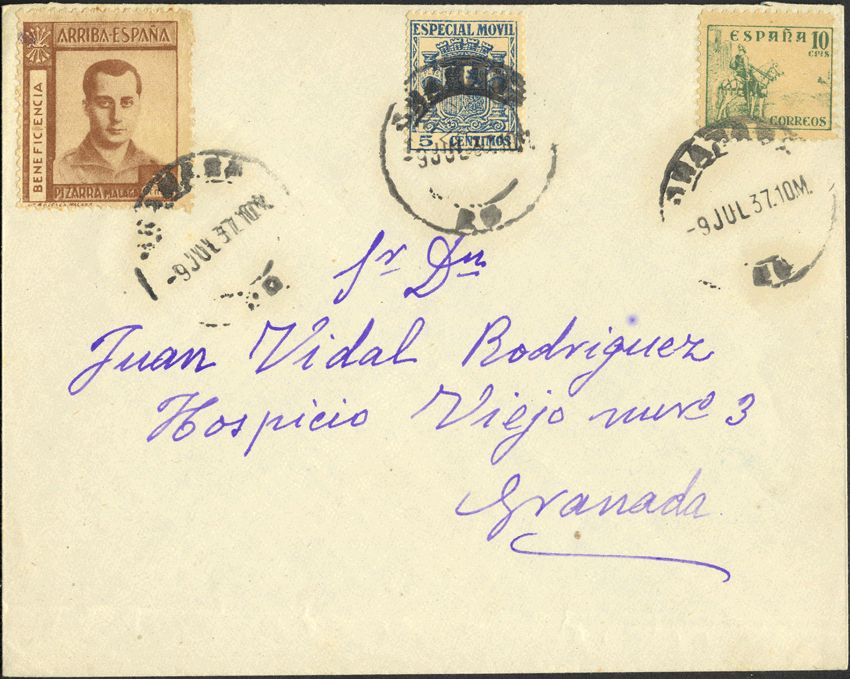 ARRIBA-ESPAÑA
BENEFICIENCIA
PIZARRA MALAGA
ESPECIAL MOVIL
5 CENTIMOS
ESPAÑA 10
CTS
CORREOS
-9 JUL 37.10M.
-9 JUL
-9 JUL 37.10M.
Sr Dn
Juan Vidal Rodriguez
Hospicio Viejo numo 3
Granada